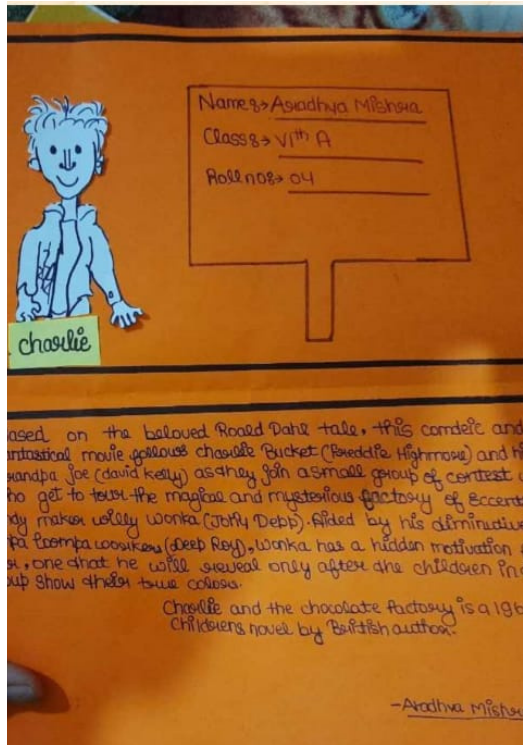 Name:→ Aradhya Mishra
Class:→ VIth A
Roll no:→ 04
charlie
ased on the beloved Roald Dahl tale, this comdeic and
ntastical movie follows charlie Bucket (Freddie Highmore) and h
randpa Joe (david kelly) as they join a small group of contest
ho get to tour the magical and mysterious factory of Eccent
dy maker willy wonka (Johy Depp). Aided by his diminutiv
pa loompa workers (Deep Roy), wonka has a hidden motivation
r, one that he will reveal only after the children in
oup show their true colors.
Charlie and the chocolate factory is a 196
childrens novel by British author.
-Aradhya Mishr